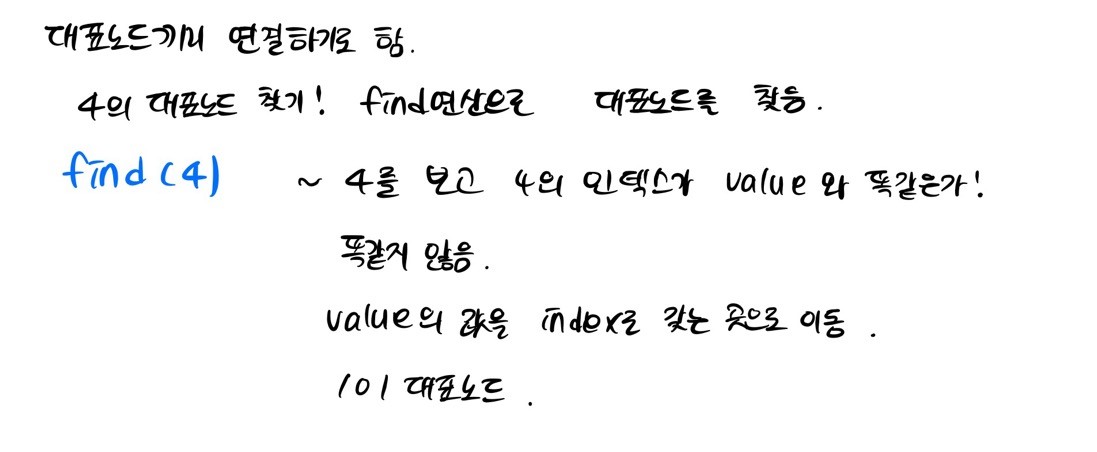 대표노드끼리 연결하기로 함.
4의 대표노드 찾기! find연산으로 대표노드를 찾음.
find(4) ~ 4를 보고 4의 인덱스가 value와 똑같은가!
똑같지 않음.
value의 값을 index로 갖는 곳으로 이동.
1이 대표노드.